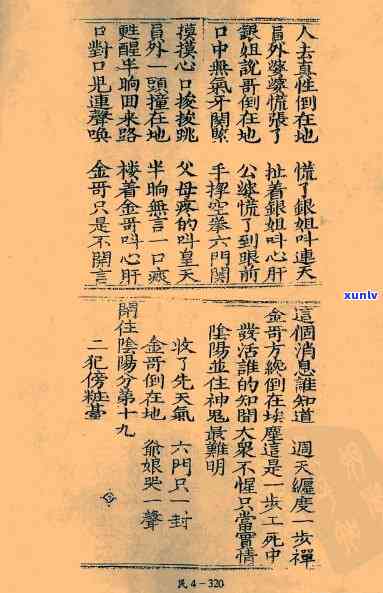 人去真性倒在地 慌了銀姐叫連天
員外婆婆慌張了 扯着銀姐叫心肝
銀姐說哥倒在地 公婆慌了到眼前
口中無氣牙関緊 手揝空拳六門関
摸摸心口挨挨跳 父母疼的叫皇天
員外一頭撞在地 半晌無言一口痰
甦醒半晌回来路 楼着金哥叫心肝
口對口児連聲喚 金哥只是不開言
這個消息誰知道 週天纏度一步禪
金哥方纔倒在埃塵這是一步工死中
發活誰的知聞大衆不惺只當實情
陰陽並住神鬼最難明
收了先天氣 六門只一封
金哥倒在地 爺娘哭一聲
閉住陰陽分第十九
二犯傍粧臺
民 4-320
xunlv